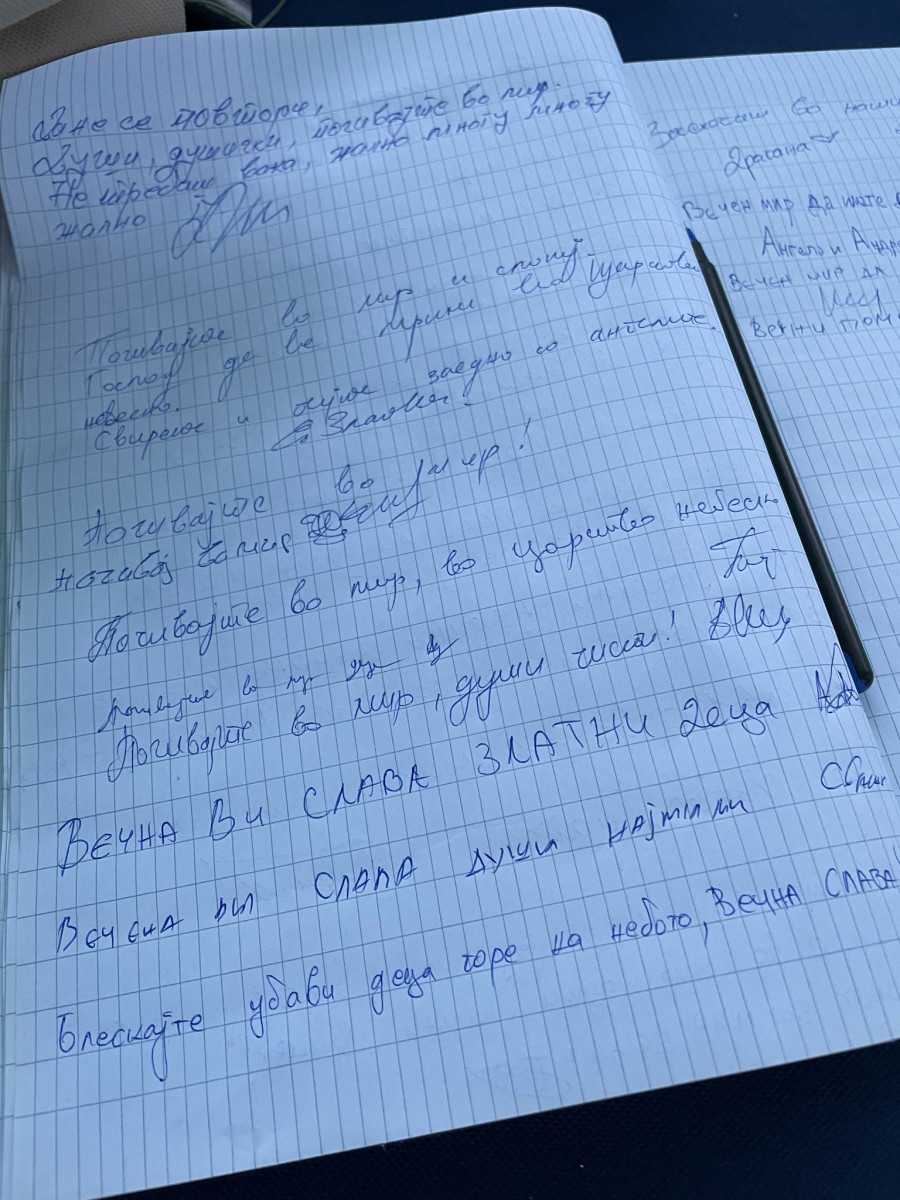 Да не се повтори,
Души, душички, почивајте во мир.
Не требаше вака, жално многу многу
жално
Почивајте во мир и спокој.
Господ да ве прими во царство
небеско.
Свирете и пејте заедно со ангелите.
Златки!
Почивајте во мир!
почивај
Почивајте во мир, во царство небеско
Почивајте во мир
Почивајте во мир, души чисти!
ВЕЧНА ВИ СЛАВА ЗЛАТНИ деца
ВЕЧЕНА СЛАВА ДУШИ НАЈМИЛИ
Блескајте убави деца горе на небото, ВЕЧНА СЛАВА
Засекогаш во наши
Драгана
Вечен мир да имате
Ангело и Андр
Вечен мир да